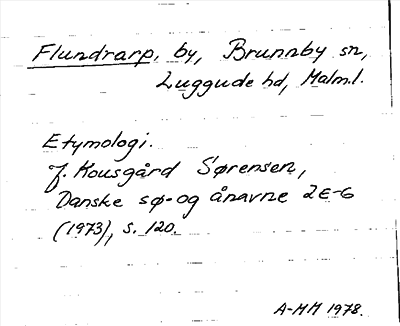 Flundrarp, by, Brunnby sn,
Luggude hd, Malm.l.
Etymologi.
J. Kousgård Sørensen,
Danske sø- og ånavne 2 E-G
(1973), s. 120.
A-MM 1978.